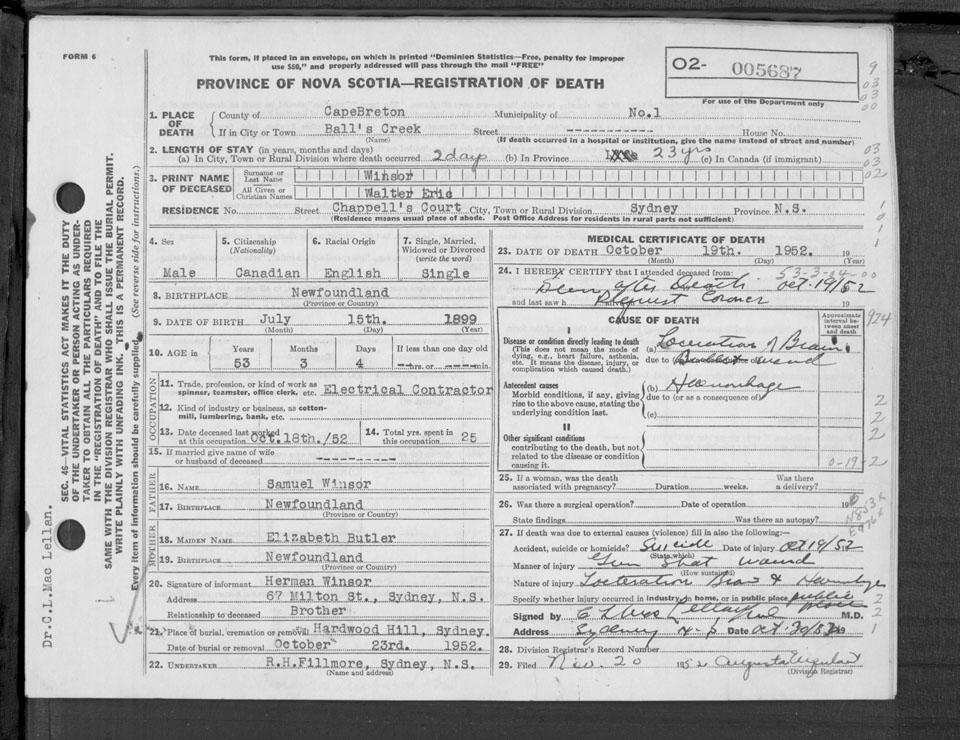 FORM 6
This form, if placed in an envelope, on which is printed "Dominion Statistics—Free, penalty for improper
use $50," and properly addressed will pass through the mail "FREE"
PROVINCE OF NOVA SCOTIA—REGISTRATION OF DEATH
O2- 005687
For use of the Department only
9
03
03
00
1. PLACE OF DEATH
County of CapeBreton Municipality of No.1
If in City or Town Ball's Creek Street ----------- House No.
(Name) (If death occurred in a hospital or institution, give the name instead of street and number)
2. LENGTH OF STAY (in years, months and days)
(a) In City, Town or Rural Division where death occurred 2 days (b) In Province 23 yrs (c) In Canada (if immigrant)
03
03
02
3. PRINT NAME OF DECEASED
Surname or Last Name Winsor
All Given or Christian Names Walter Eric
RESIDENCE No. Street Chappell's Court City, Town or Rural Division Sydney Province N.S.
(Residence means usual place of abode. Post Office Address for residents in rural parts not sufficient)
4. Sex
Male
5. Citizenship
(Nationality)
Canadian
6. Racial Origin
English
7. Single, Married,
Widowed or Divorced
(write the word)
Single
8. BIRTHPLACE Newfoundland
(Province or Country)
9. DATE OF BIRTH July 15th. 1899
(Month) (Day) (Year)
10. AGE in
Years Months Days If less than one day old
53 3 4 --hrs. or ----min.
OCCUPATION
11. Trade, profession, or kind of work as
spinner, teamster, office clerk, etc. Electrical Contractor
12. Kind of industry or business, as cotton-
mill, lumbering, bank, etc.
13. Date deceased last worked
at this occupation Oct.18th./52
14. Total yrs. spent in
this occupation 25
15. If married give name of wife
or husband of deceased -----------
FATHER
16. NAME Samuel Winsor
17. BIRTHPLACE Newfoundland
(Province or Country)
MOTHER
18. MAIDEN NAME Elizabeth Butler
19. BIRTHPLACE Newfoundland
(Province or Country)
20. Signature of informant Herman Winsor
Address 67 Milton St., Sydney, N.S.
Relationship to deceased Brother
21. Place of burial, cremation or removal Hardwood Hill, Sydney.
Date of burial or removal October 23rd. 1952.
22. UNDERTAKER R.H.Fillmore, Sydney, N.S.
(Name and address)
MEDICAL CERTIFICATE OF DEATH
23. DATE OF DEATH October 19th. 1952. 19
(Month) (Day) (Year)
24. I HEREBY CERTIFY that I attended deceased from: 53-3-04-00
Seen after death Oct. 19/52
and last saw h Request Coroner 19
CAUSE OF DEATH
Approximate
interval be-
tween onset
and death
924
I
Disease or condition directly leading to death
(This does not mean the mode of
dying, e.g., heart failure, asthenia,
etc. It means the disease, injury, or
complication which caused death.)
(a) Loceration of Brain
due to Bullet wound
Antecedent causes
Morbid conditions, if any, giving
rise to the above cause, stating the
underlying condition last.
(b) Haemorrhage
due to (or as a consequence of)
(c)
II
Other significant conditions
contributing to the death, but not
related to the disease or condition
causing it.
0-19-2
25. If a woman, was the death
associated with pregnancy? Duration weeks. Was there
a delivery?
26. Was there a surgical operation? Date of operation 19
State findings Was there an autopsy?
27. If death was due to external causes (violence) fill in also the following:—
Accident, suicide or homicide? Suicide Date of injury Oct 19/52
(State which)
Manner of injury Gun Shot wound
(How sustained)
Nature of injury Loceration Brain & Haemorrhage
Specify whether injury occurred in industry, in home, or in public place public place
Signed by M.D.
Address Sydney N.S Date Oct 30/52 19
28. Division Registrar's Record Number
29. Filed Nov. 20 1952
(Division Registrar)
SEC. 46—VITAL STATISTICS ACT MAKES IT THE DUTY
OF THE UNDERTAKER OR PERSON ACTING AS UNDER-
TAKER TO OBTAIN ALL THE PARTICULARS REQUIRED
IN THE "REGISTRATION OF DEATH" AND TO FILE THE
SAME WITH THE DIVISION REGISTRAR WHO SHALL ISSUE THE BURIAL PERMIT.
WRITE PLAINLY WITH UNFADING INK. THIS IS A PERMANENT RECORD.
Every item of information should be carefully supplied. (See reverse side for instructions.)
Dr.C.L.Mac Lellan.